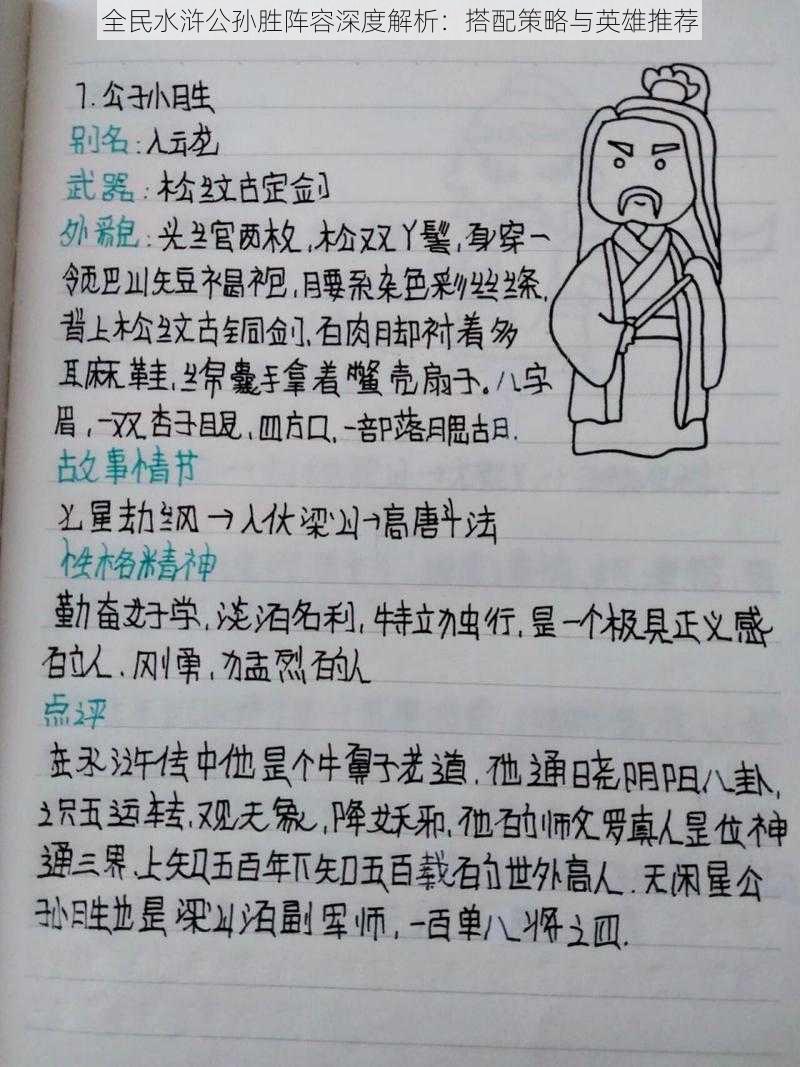 全民水浒公孙胜阵容深度解析：搭配策略与英雄推荐
7.公孙胜
别名：入云龙
武器：松纹古定剑
外貌：头绾官两枚，松双丫髻，身穿一
领巴山短褐袍，腰系杂色彩丝绦，
背上松纹古铜剑，白肉脚衬着多
耳麻鞋，绵囊手拿着鳖壳扇子。八字
眉，一双杏子眼，四方口，一部落腮胡.
故事情节
七星劫纲→入伙梁山→高唐斗法
性格精神
勤奋好学，淡泊名利，特立独行，是一个极具正义感
的人.刚勇，猛烈的人
点评
在水浒传中他是个牛鼻子老道.他通晓阴阳八卦，
识五运转，观天象，降妖邪，他的师父罗真人是位神
通三界.上知五百年下知五百载的世外高人.天闲星公
孙胜也是梁山泊副军师，一百单八将之四.